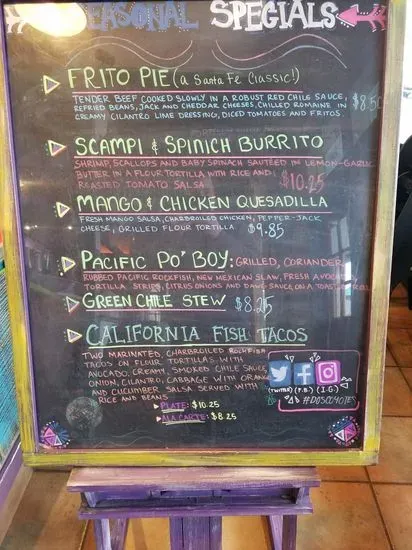 SEASONAL SPECIALS
FRITO PIE (a Santa Fe Classic!)
TENDER BEEF COOKED SLOWLY IN A ROBUST RED CHILE SAUCE,
REFRIED BEANS, JACK AND CHEDDAR CHEESES, CHILLED ROMAINE IN $8.50
CREAMY CILANTRO LIME DRESSING, DICED TOMATOES AND FRITOS.
SCAMPI & SPINICH BURRITO
SHRIMP, SCALLOPS AND BABY SPINACH SAUTÉED IN LEMON-GARLIC
BUTTER IN A FLOUR TORTILLA WITH RICE AND
ROASTED TOMATO SALSA $10.25
MANGO & CHICKEN QUESADILLA
FRESH MANGO SALSA, CHARBROILED CHICKEN, PEPPER-JACK
CHEESE, GRILLED FLOUR TORTILLA $9.85
PACIFIC PO' BOY: GRILLED, CORIANDER
RUBBED PACIFIC ROCKFISH, NEW MEXICAN SLAW, FRESH AVOCADO,
TORTILLA STRIPS, CITRUS ONIONS AND DAWG SAUCE, ON A TOASTED ROLL
GREEN CHILE STEW $8.25
CALIFORNIA FISH TACOS
TWO MARINATED, CHARBROILED ROCKFISH
TACOS ON FLOUR TORTILLAS WITH
AVOCADO, CREAMY, SMOKED CHILE SAUCE,
ONION, CILANTRO, CABBAGE WITH ORANGE
AND CUCUMBER SALSA SERVED WITH
RICE AND BEANS
PLATE: $10.25
ALA CARTE: $8.25
(TWITTER) (F.B.) (I.G)
#DOSCOYOTES